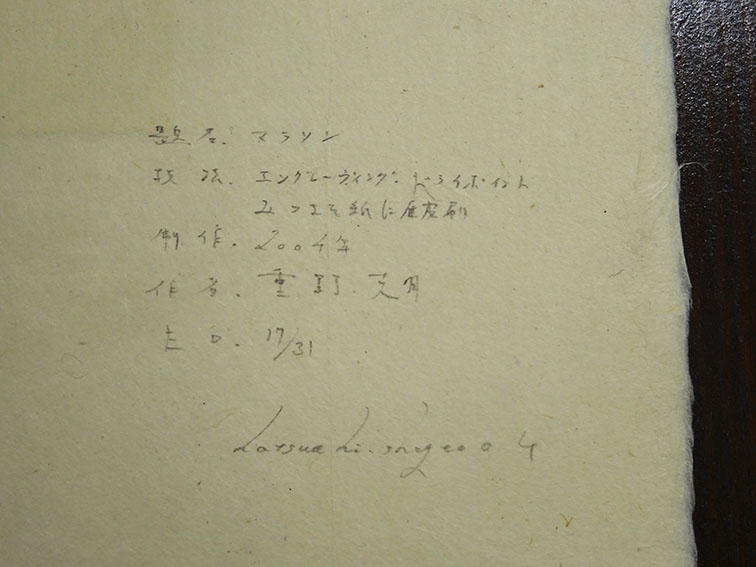 題名. マラソン
技法. エングレーヴィング. ドライポイント
みつまた紙に雁皮刷
制作. 2004年
作者. 重野克明
17/31